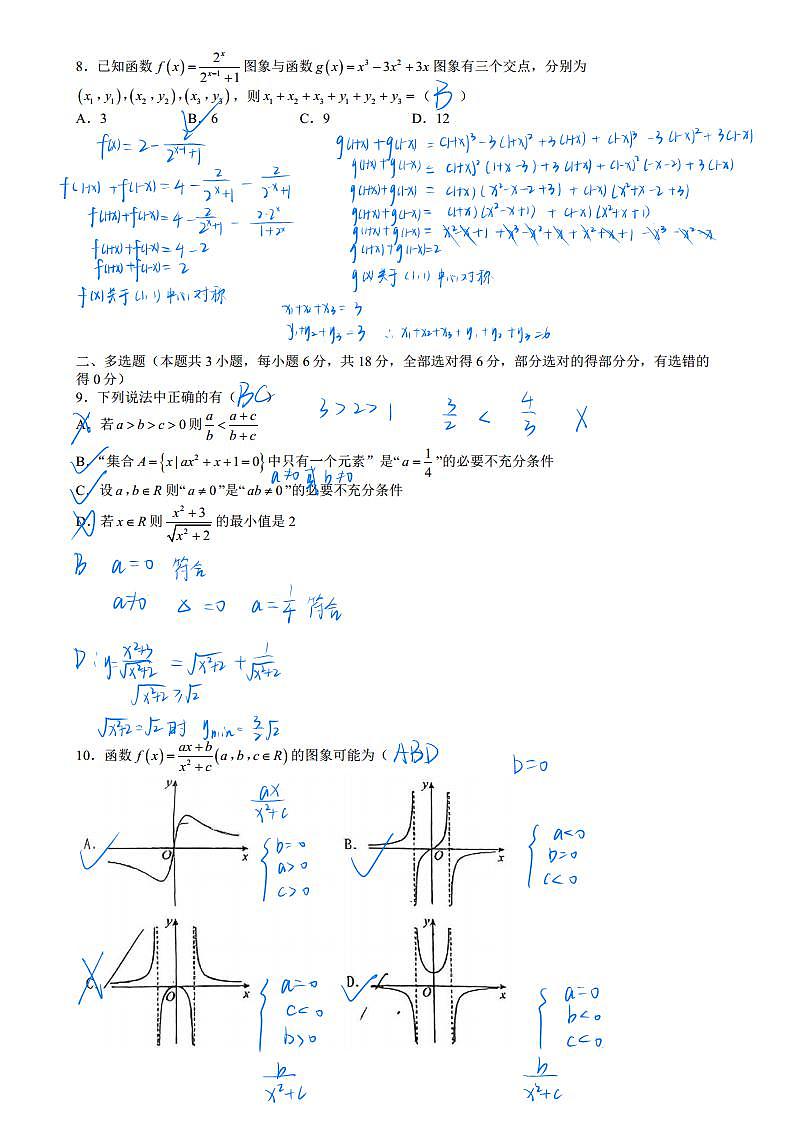 8．已知函数 f(x)=2^x/(2^(x-1)+1) 图象与函数 g(x)=x³-3x²+3x 图象有三个交点，分别为
(x₁,y₁),(x₂,y₂),(x₃,y₃)，则 x₁+x₂+x₃+y₁+y₂+y₃=（ B ）
A．3 B．6 C．9 D．12
f(x)=2-2/(2^(x-1)+1)
f(1+x)+f(1-x)=4-2/(2^x+1)-2/(2^(-x)+1)
f(1+x)+f(1-x)=4-2/(2^x+1)-2·2^x/(1+2^x)
f(1+x)+f(1-x)=4-2
f(1+x)+f(1-x)=2
f(x)关于(1,1)中心对称
g(1+x)+g(1-x)=(1+x)³-3(1+x)²+3(1+x)+(1-x)³-3(1-x)²+3(1-x)
g(1+x)+g(1-x)=(1+x)²(1+x-3)+3(1+x)+(1-x)²(-x-2)+3(1-x)
g(1+x)+g(1-x)=(1+x)(x²-x-2+3)+(1-x)(x²+x-2+3)
g(1+x)+g(1-x)=(1+x)(x²-x+1)+(1-x)(x²+x+1)
g(1+x)+g(1-x)=x²-x+1+x³-x²+x+x²+x+1-x³-x²-x
g(1+x)+g(1-x)=2
g(x)关于(1,1)中心对称
x₁+x₂+x₃=3
y₁+y₂+y₃=3 ∴x₁+x₂+x₃+y₁+y₂+y₃=6
二、多选题（本题共3小题，每小题6分，共18分，全部选对得6分，部分选对的得部分分，有选错的
得0分）
9．下列说法中正确的有（ BC
A．若 a>b>c>0 则 a/b<(a+c)/(b+c)
3>2>1 3/2 < 4/3 X
B．“集合 A={x|ax²+x+1=0} 中只有一个元素”是“a=1/4”的必要不充分条件
a≠0 b≠0
C．设 a,b∈R 则“a≠0”是“ab≠0”的必要不充分条件
D．若 x∈R 则 (x²+3)/√(x²+2) 的最小值是2
B a=0 符合
a≠0 Δ=0 a=1/4 符合
D：y=(x²+3)/√(x²+2)=√(x²+2)+1/√(x²+2)
√(x²+2)≥√2
√(x²+2)=√2时 y_min=3/2√2
10．函数 f(x)=(ax+b)/(x²+c)(a,b,c∈R) 的图象可能为（ ABD
b=0
A． y O x
ax/(x²+c)
b=0
a>0
c>0
B． y O x
a<0
b=0
c<0
C． y O x
a=0
c<0
b>0
b/(x²+c)
D． y O x
a=0
b<0
c<0
b/(x²+c)